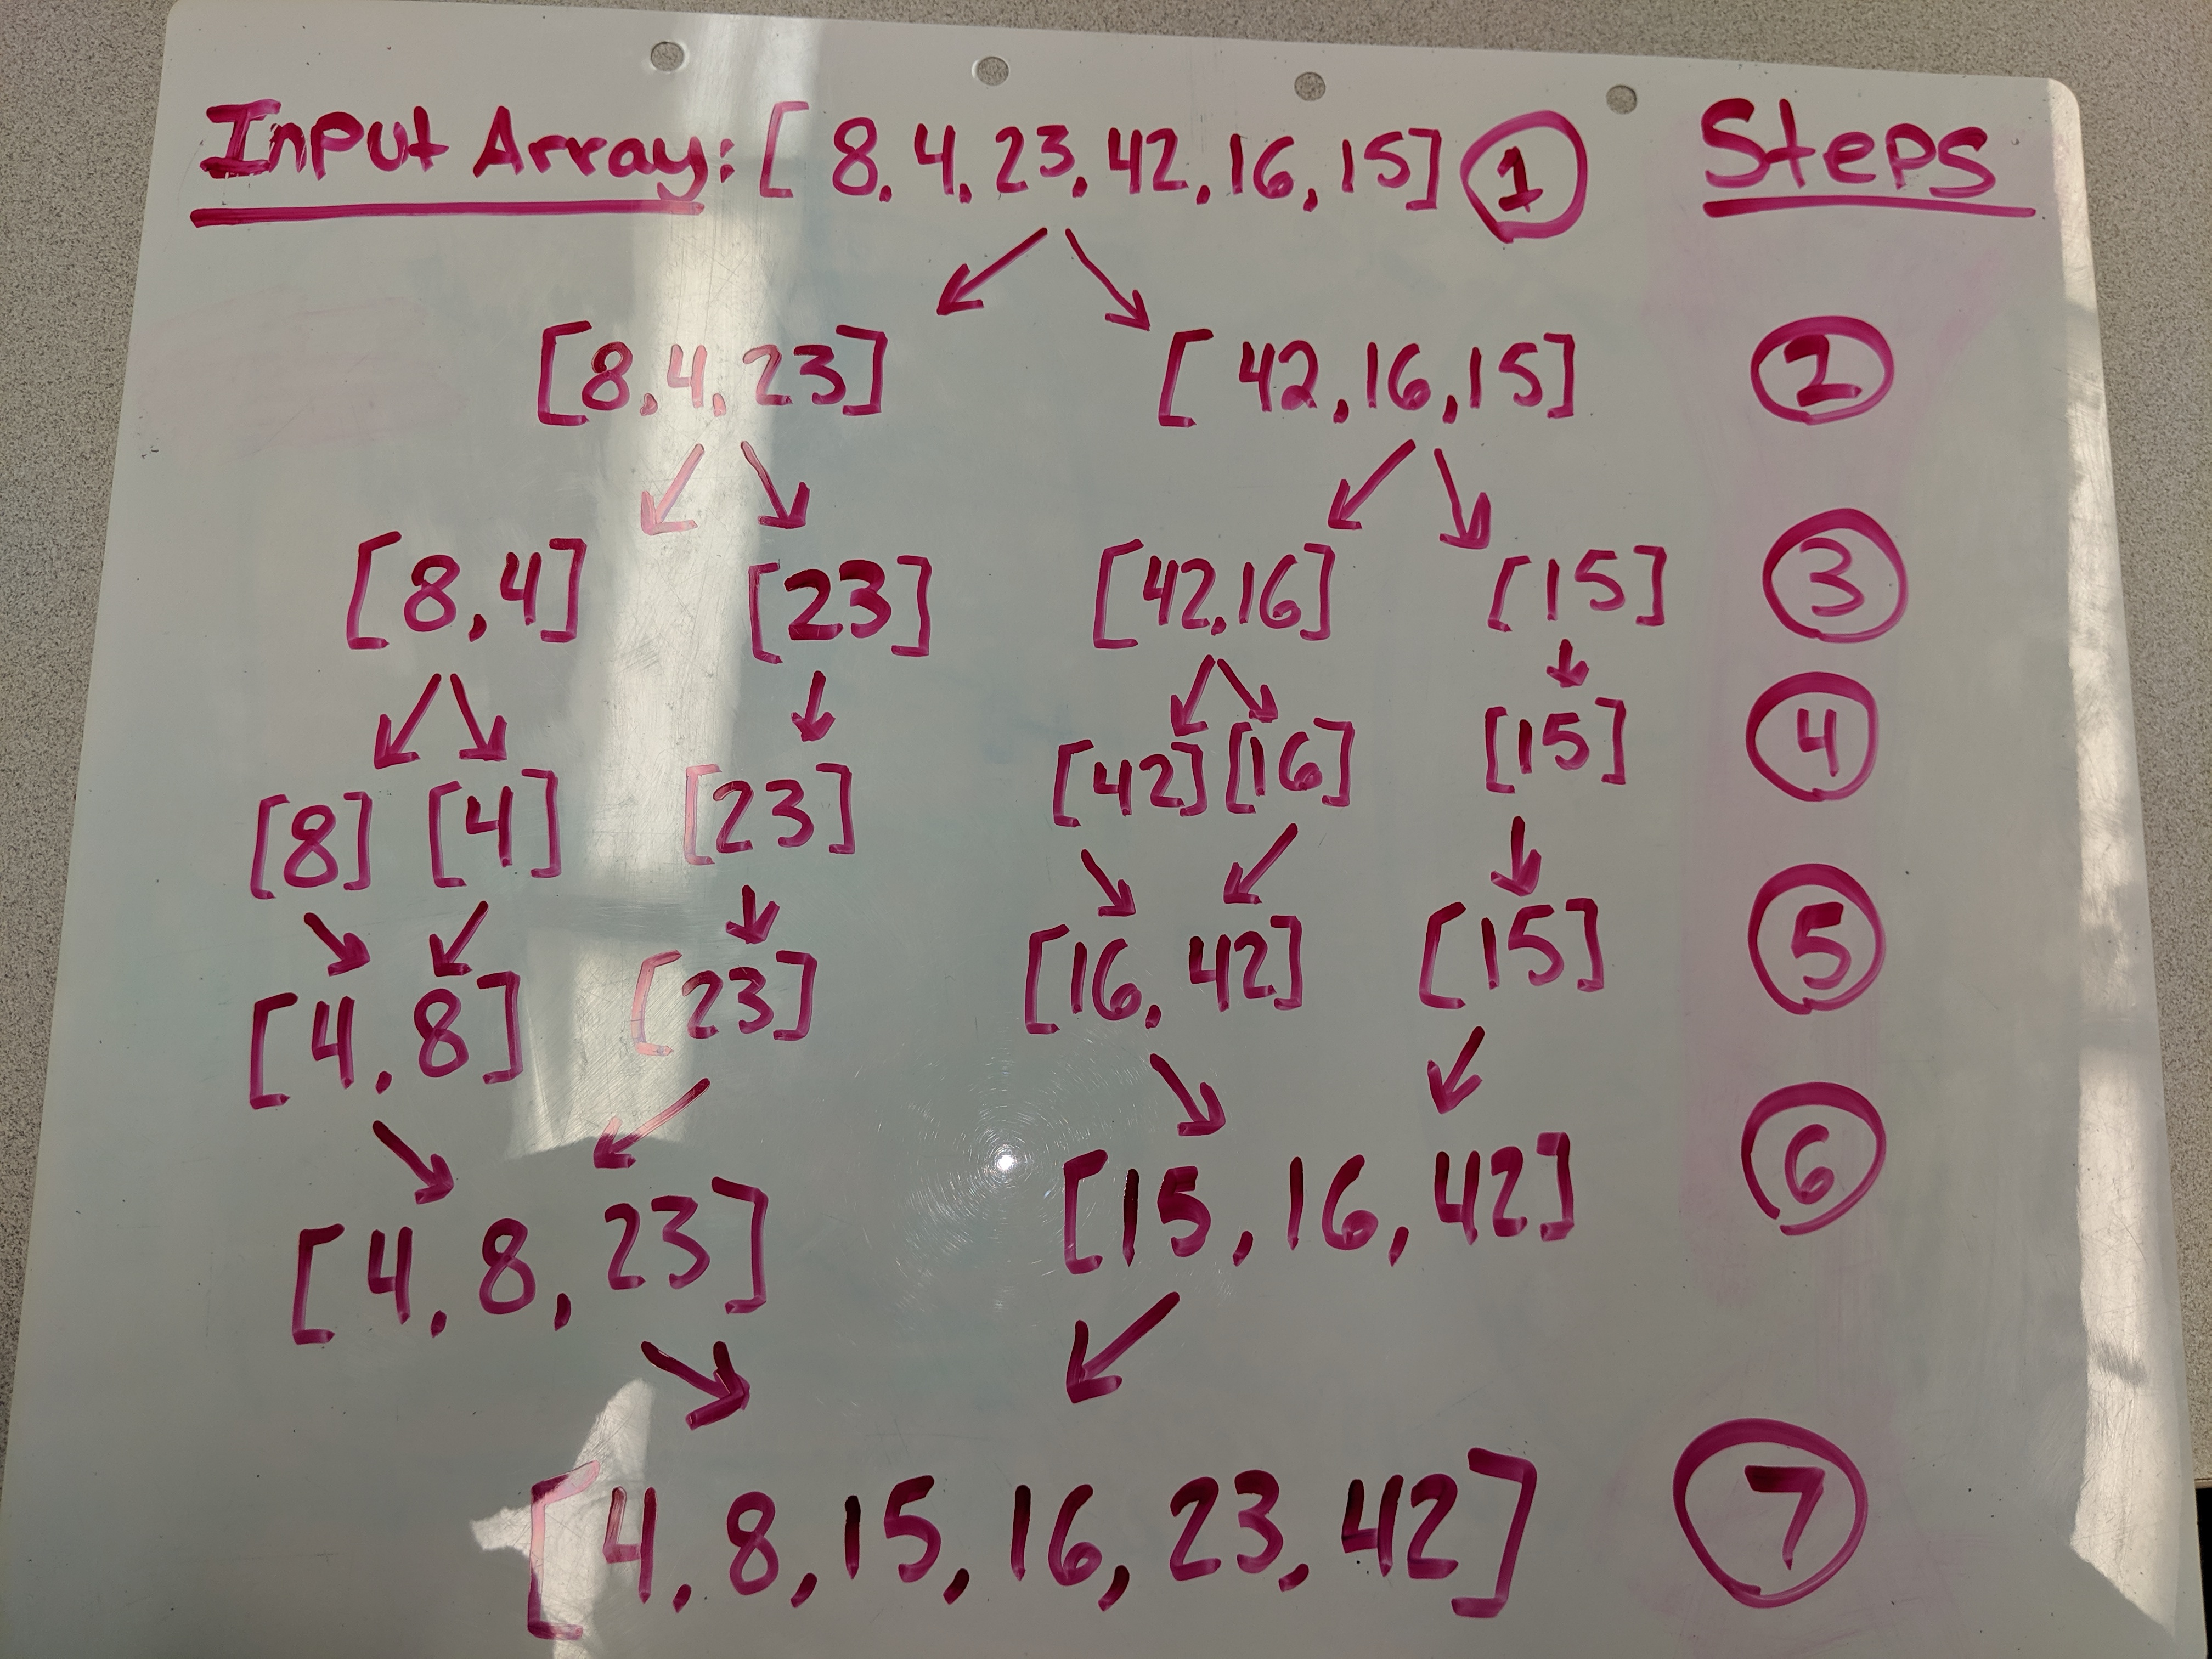 Input Array: [8, 4, 23, 42, 16, 15] 1 Steps
[8, 4, 23] [42, 16, 15] 2
[8, 4] [23] [42, 16] [15] 3
[8] [4] [23] [42] [16] [15] 4
[4, 8] [23] [16, 42] [15] 5
[4, 8, 23] [15, 16, 42] 6
[4, 8, 15, 16, 23, 42] 7